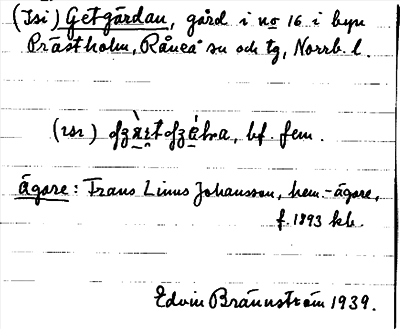 (Isi) Getgårdan, gård i no 16 i byn
Prästholm, Råneå sn och tg, Norrb. l.
bf. fem.
Ägare: Frans Linus Johansson, hem.-ägare,
f. 1893 kb.
Edvin Brännström 1939.